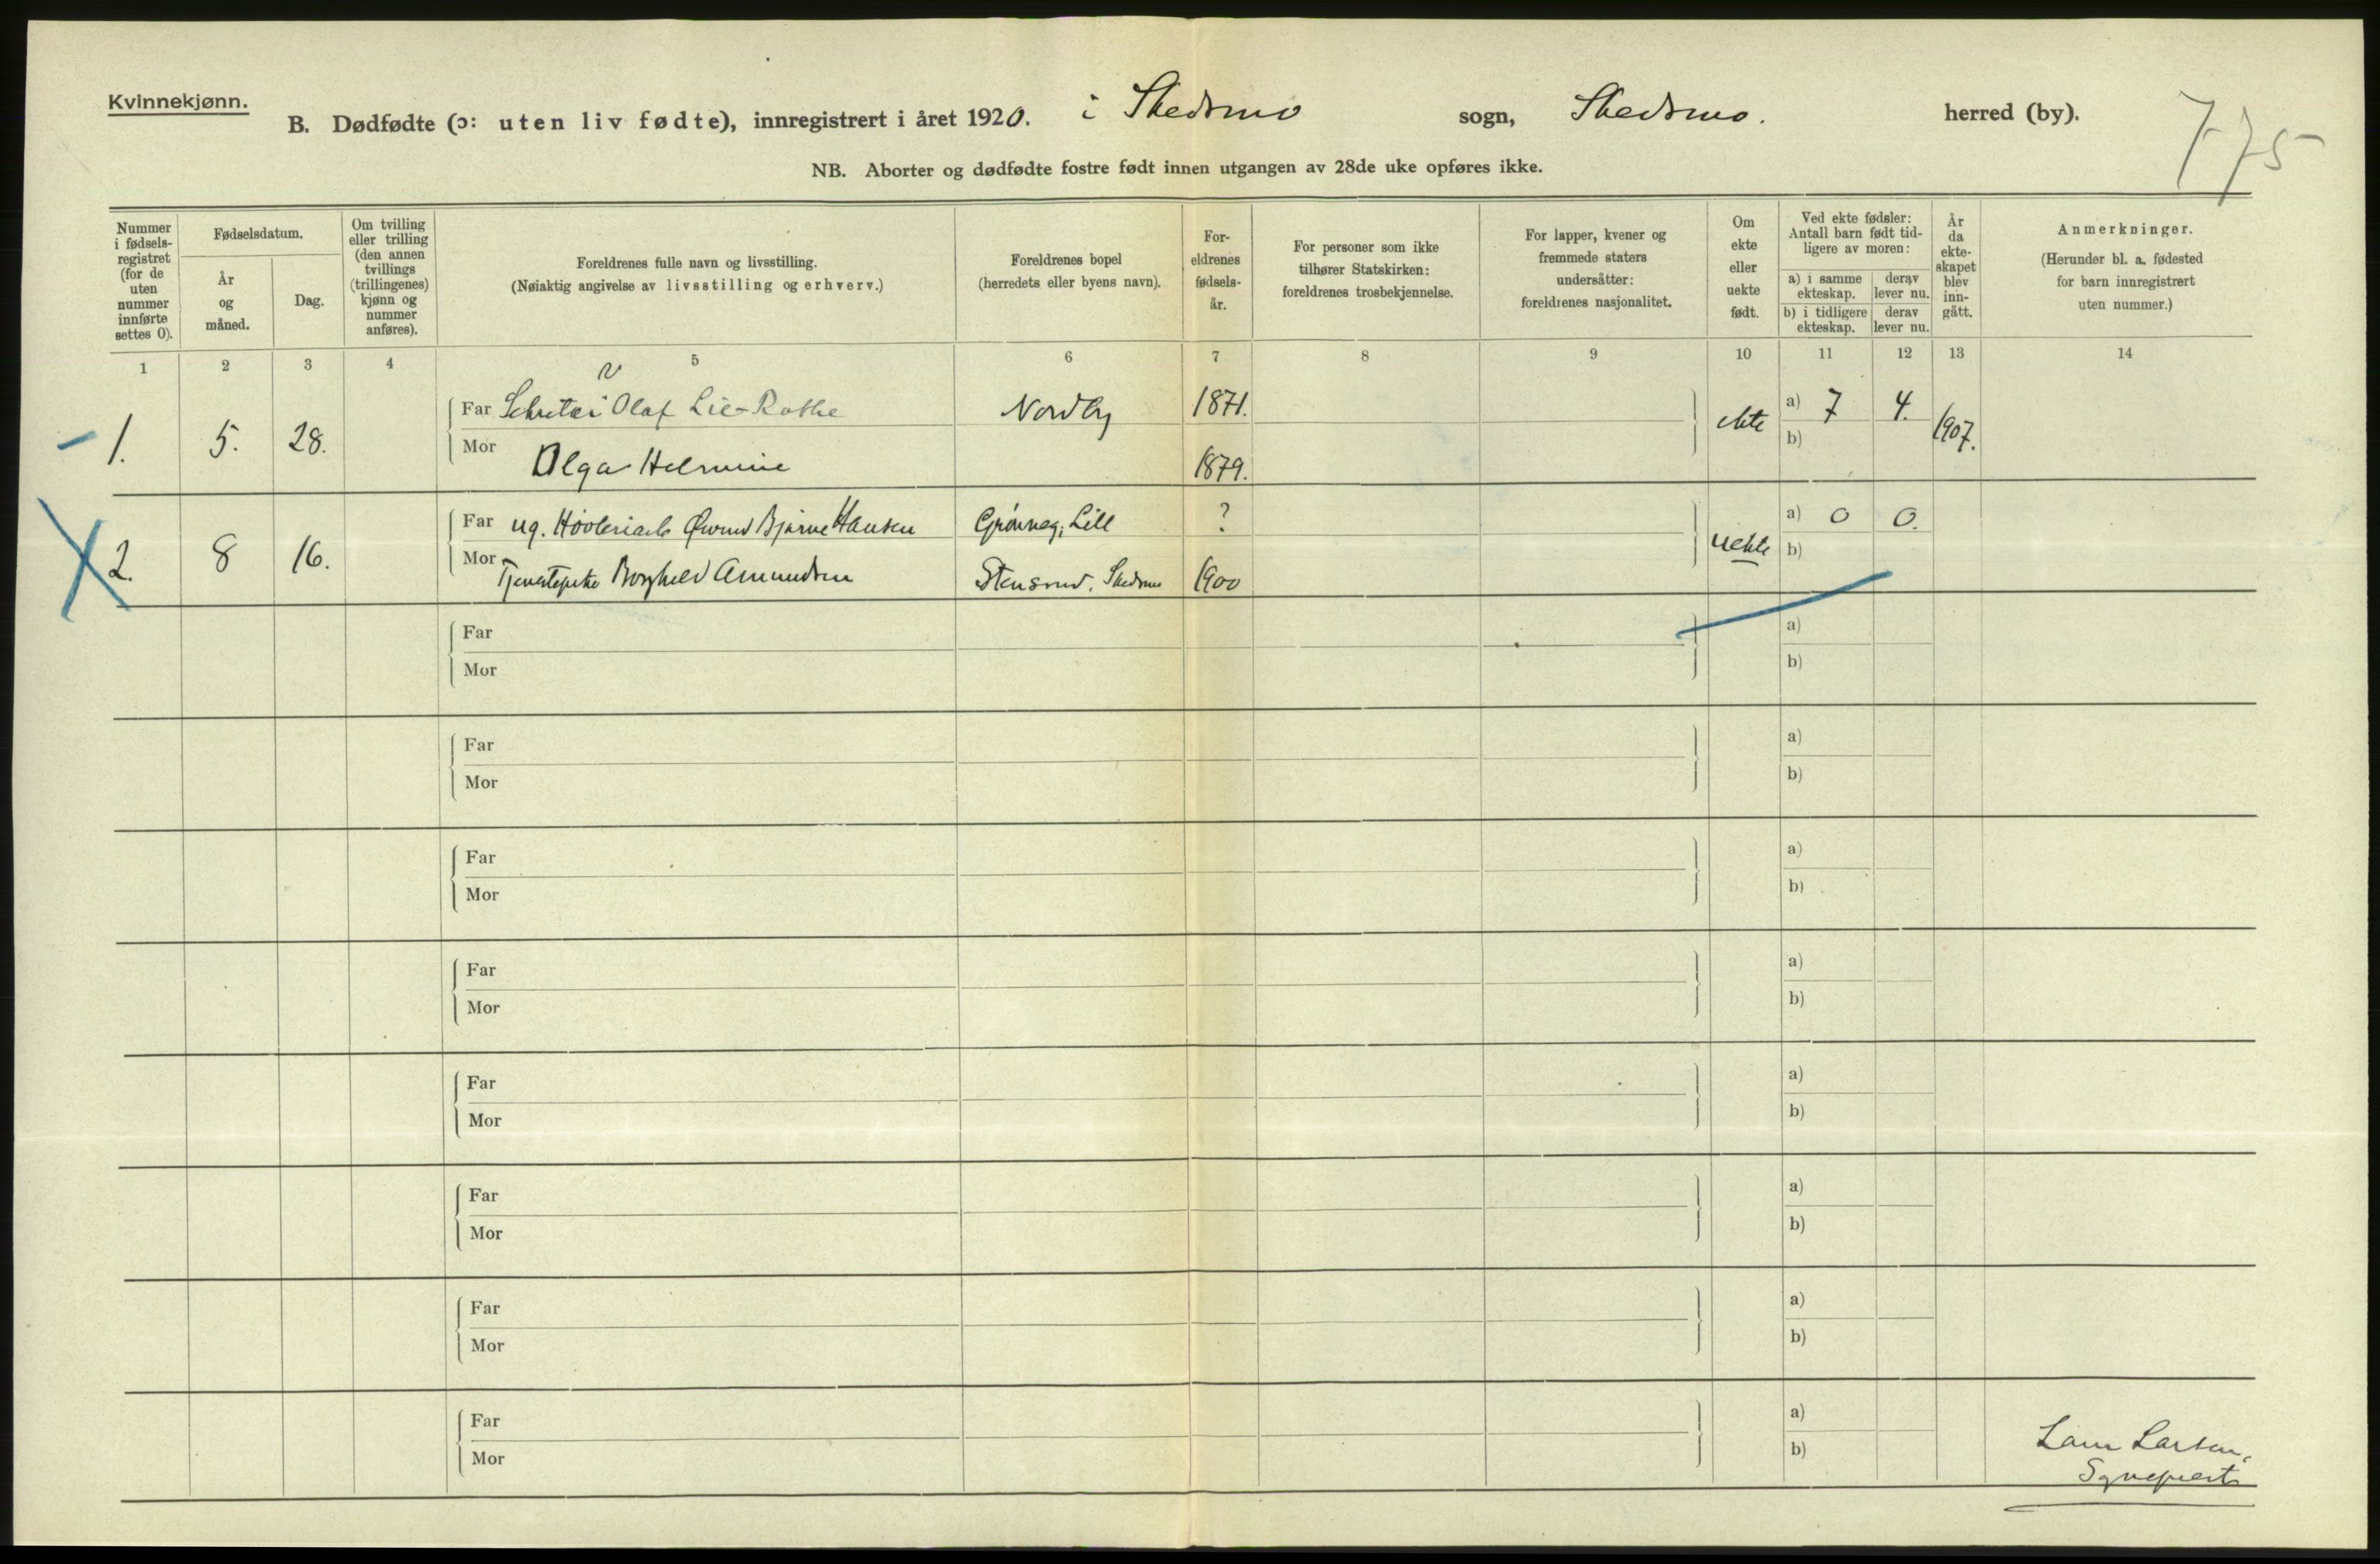 Kvinnekjønn.
B. Dødfødte (ɔ: uten liv fødte), innregistrert i året 1920. i Skedsmo sogn, Skedsmo. herred (by).
775
NB. Aborter og dødfødte fostre født innen utgangen av 28de uke opføres ikke.
Nummer i fødsels- registret (for de uten nummer innførte settes 0).
Fødselsdatum.
År og måned.
Dag.
Om tvilling eller trilling (den annen tvillings (trillingenes) kjønn og nummer anføres).
Foreldrenes fulle navn og livsstilling.
(Nøiaktig angivelse av livsstilling og erhverv.)
Foreldrenes bopel
(herredets eller byens navn).
For- eldrenes fødsels- år.
For personer som ikke tilhører Statskirken: foreldrenes trosbekjennelse.
For lapper, kvener og fremmede staters undersåtter: foreldrenes nasjonalitet.
Om ekte eller uekte født.
Ved ekte fødsler: Antall barn født tid- ligere av moren:
a) i samme ekteskap.
derav lever nu.
b) i tidligere ekteskap.
derav lever nu.
År da ekte- skapet blev inn- gått.
Anmerkninger.
(Herunder bl. a. fødested for barn innregistrert uten nummer.)
1 2 3 4 5 6 7 8 9 10 11 12 13 14
1. 5. 28. Far Olaf Lie-Rothe Nordby 1871. ekte a) 7 4. 1907.
Mor Olga Helmine 1879. b)
2. 8 16. Far ug. Øivind Bjarne Hansen Grønneg, Lill ? uekte a) 0 0.
Mor Tjenestepike Borghild Amundsen Stensrud. Skedsmo 1900 b)
Far a)
Mor b)
Far a)
Mor b)
Far a)
Mor b)
Far a)
Mor b)
Far a)
Mor b)
Far a)
Mor b)
Far a)
Mor b)
Far a)
Mor b)
Larsen,
Sogneprest